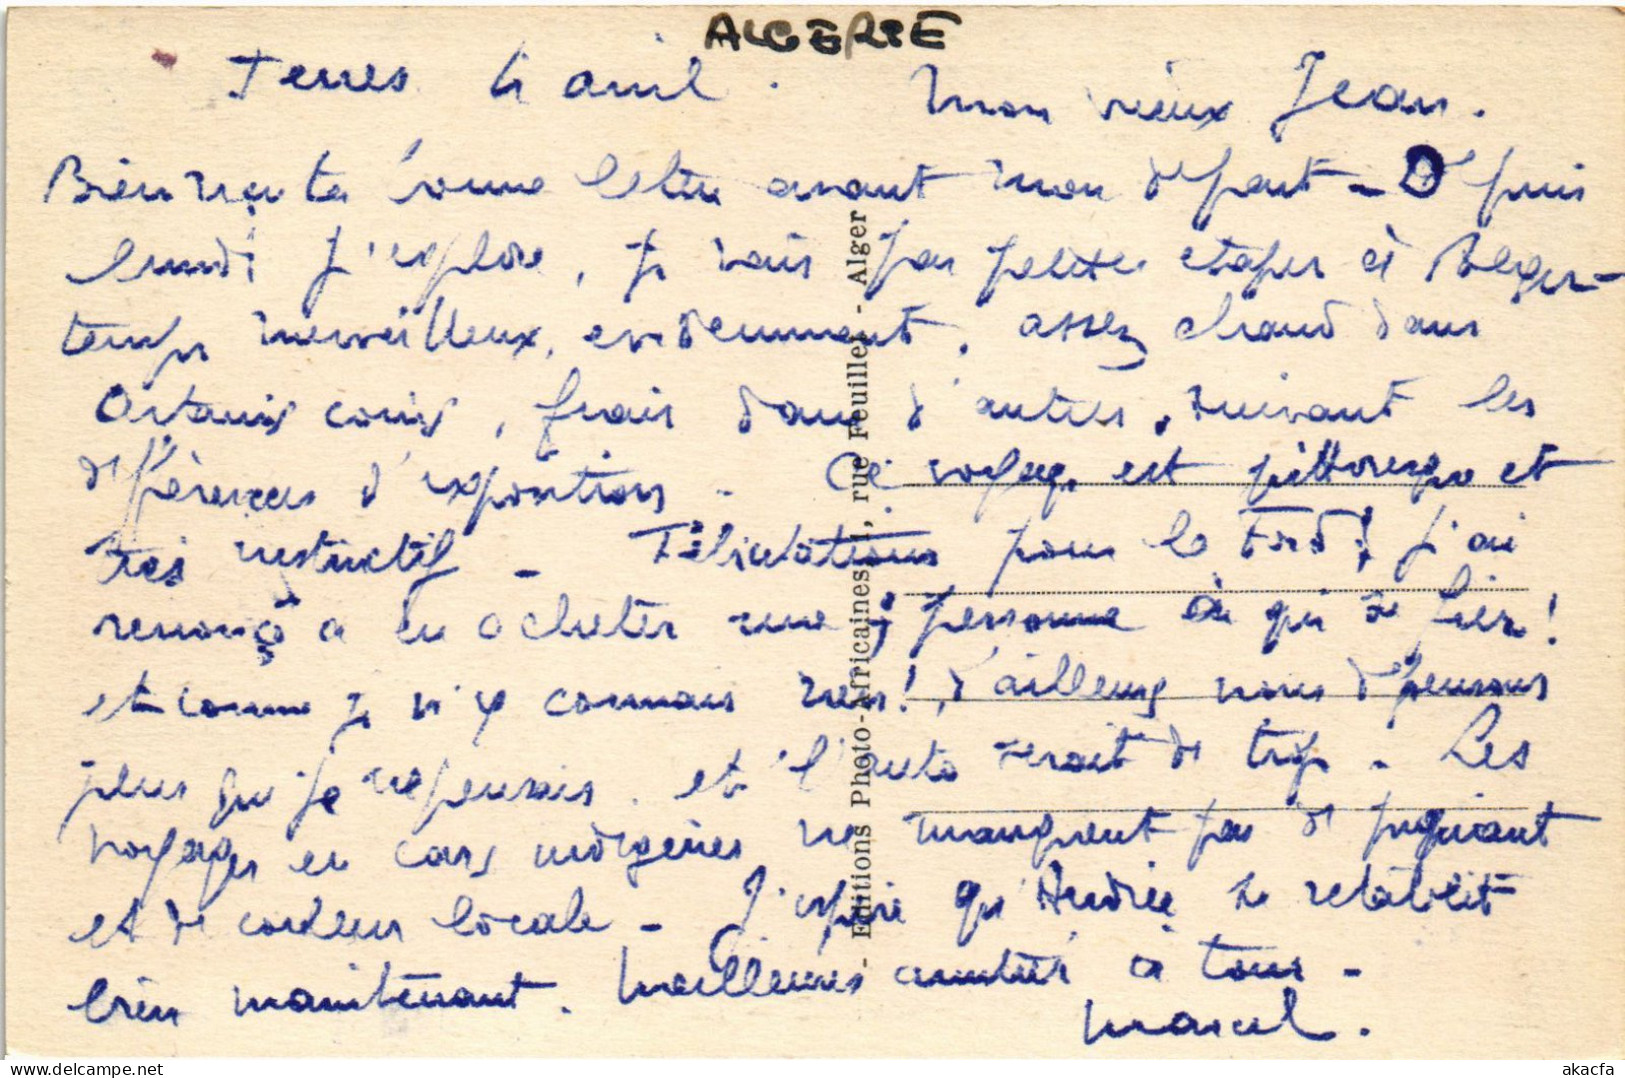 ALGERIE
Tenes 4 avril. Mon vieux Jean.
Bien reçu ta bonne lettre avant mon départ - Depuis
lundi j'explore, je vais par petites etapes à Alger -
temps merveilleux, evidemment, assez chaud dans
certains coins, frais dans d'autres, suivant les
différences d'expositions - Ce voyage est pittoresque et
très instructif - Félicitations pour la Ford! j'ai
renoncé a en acheter une; personne à qui se fier!
et comme je n'y connais rien!, d'ailleurs nous dépensons
plus que je ne pensais, et l'auto serait de trop - Les
voyages en cars indigènes ne manquent pas de piquant
et de couleur locale - J'espère qu'Andrée se rétablit
bien maintenant. Meilleures amitiés à tous -
Marcel.
- Editions Photo-Africaines, rue Feuillet - Alger
akacfa